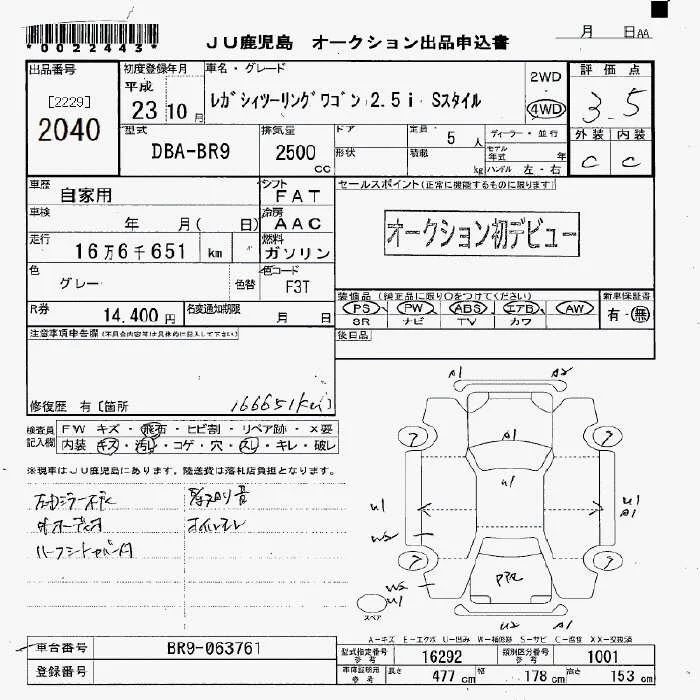 *0022443*
JU鹿児島 オークション出品申込書
月 日AA
出品番号 初度登録年月 車名・グレード 2WD 評価点
[2229] 平成 レガシィツーリングワゴン 2.5i Sスタイル 4WD 3.5
2040 23 10 月
型式 排気量 ドア 定員 5 人 ディーラー・並行 外装 内装
DBA-BR9 2500 cc 形状 積載 kg モデル年式 年 ハンドル 左・右 C C
車歴 自家用 シフト FAT セールスポイント(正常に機能するものに限ります)
車検 年 月( 日) 冷房 AAC オークション初デビュー
走行 16万6千651 km 燃料 ガソリン
色 グレー 色替 色コード F3T
装備品(純正品に限り○をつけてください) 新車保証書
R券 14,400円 名変通知期限 月 日 PS PW ABS エアB AW 有・無
SR ナビ TV カワ
注意事項申告欄(不具合内容等は具体的に記入して下さい) 後日品
修復歴 有〔箇所 166651km〕
検査員記入欄 FW キズ・飛石・ヒビ割・リペア跡・X要
内装 キズ・汚れ・コゲ・穴・スレ・キレ・破レ
※現車はJU鹿児島にあります。陸送費は落札店負担となります。
A1 A2
A1
U1
U1 U1 A1
W2
W2 U1
スペア
U2 A1
A-キズ E-エクボ U-凹み W-補修跡 S-サビ C-腐食 XX-交換済
車台番号 BR9-063761 型式指定番号 参考 16292 類別区分番号 参考 1001
登録番号 車庫証明用 参考 長さ 477 cm 幅 178 cm 高さ 153 cm